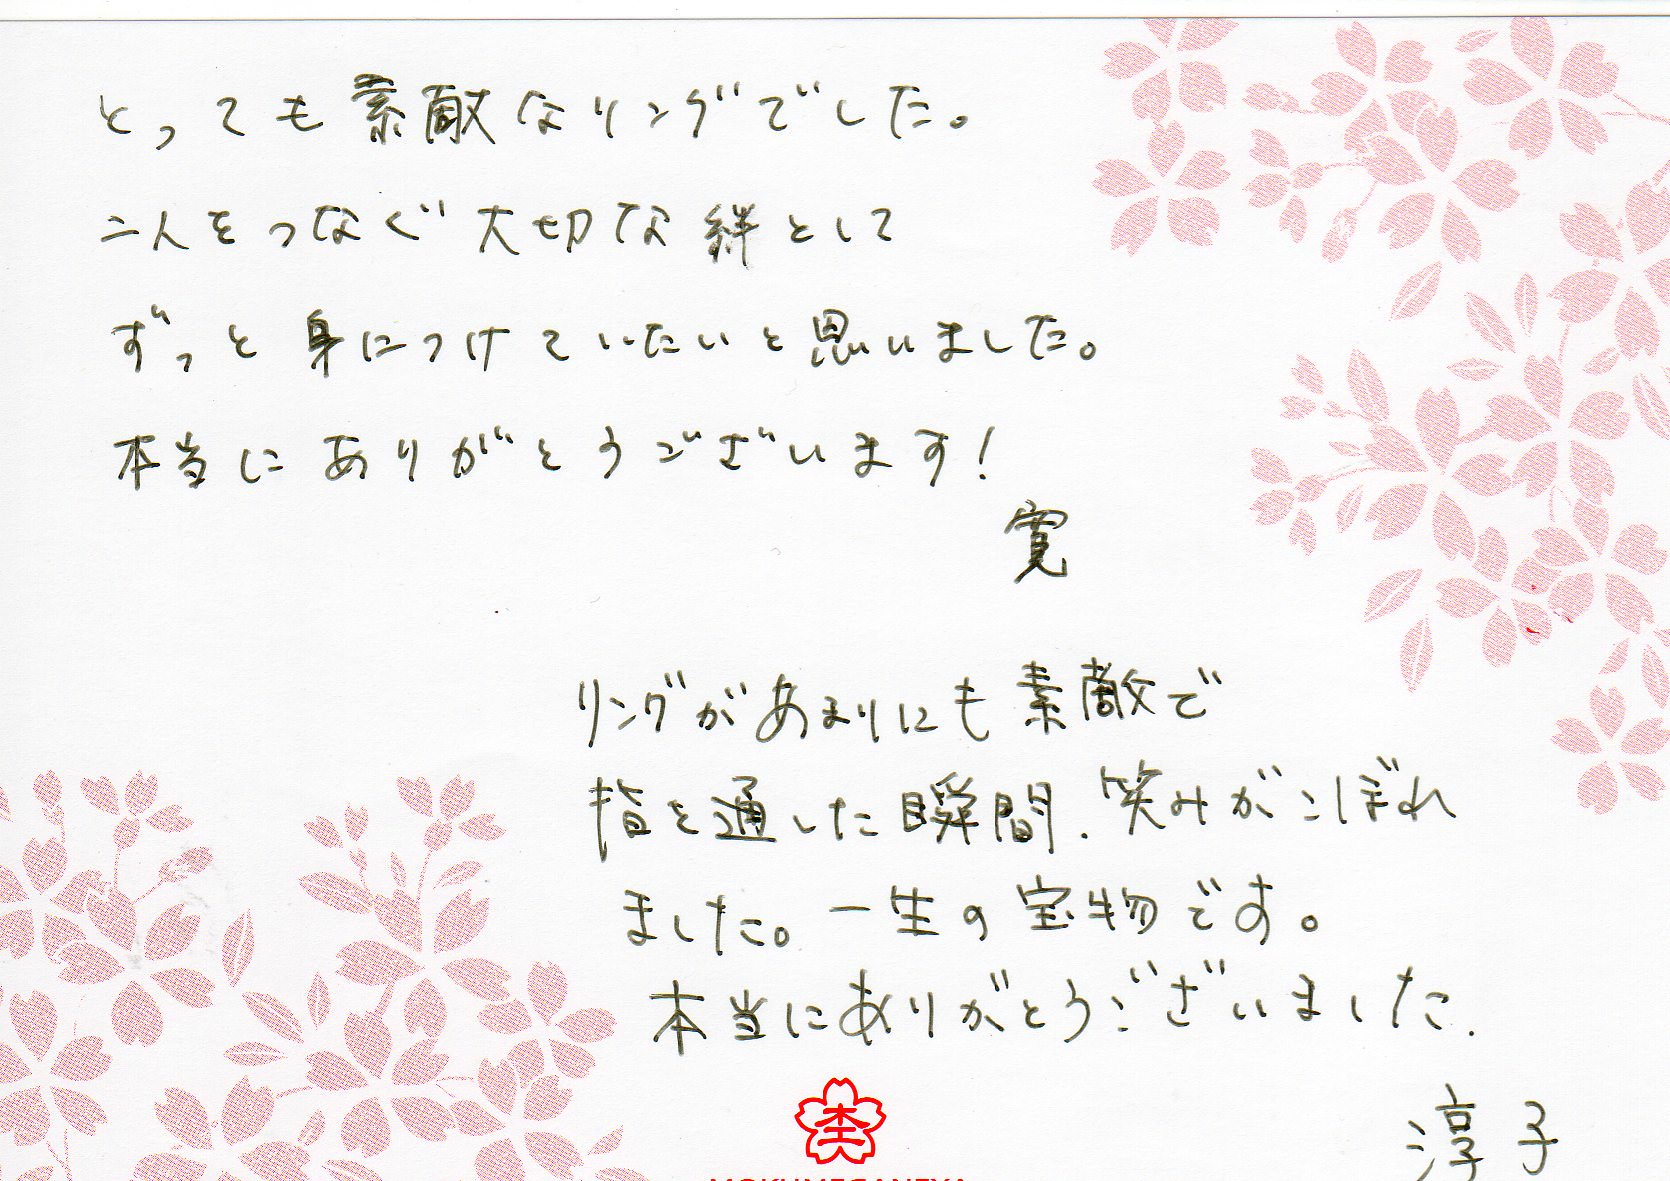 とっても素敵なリングでした。
二人をつなぐ大切な絆として
ずっと身につけていたいと思いました。
本当にありがとうございます!
寛
リングがあまりにも素敵で
指を通した瞬間、笑みがこぼれ
ました。一生の宝物です。
本当にありがとうございました.
淳子
MOKUMEGANEYA